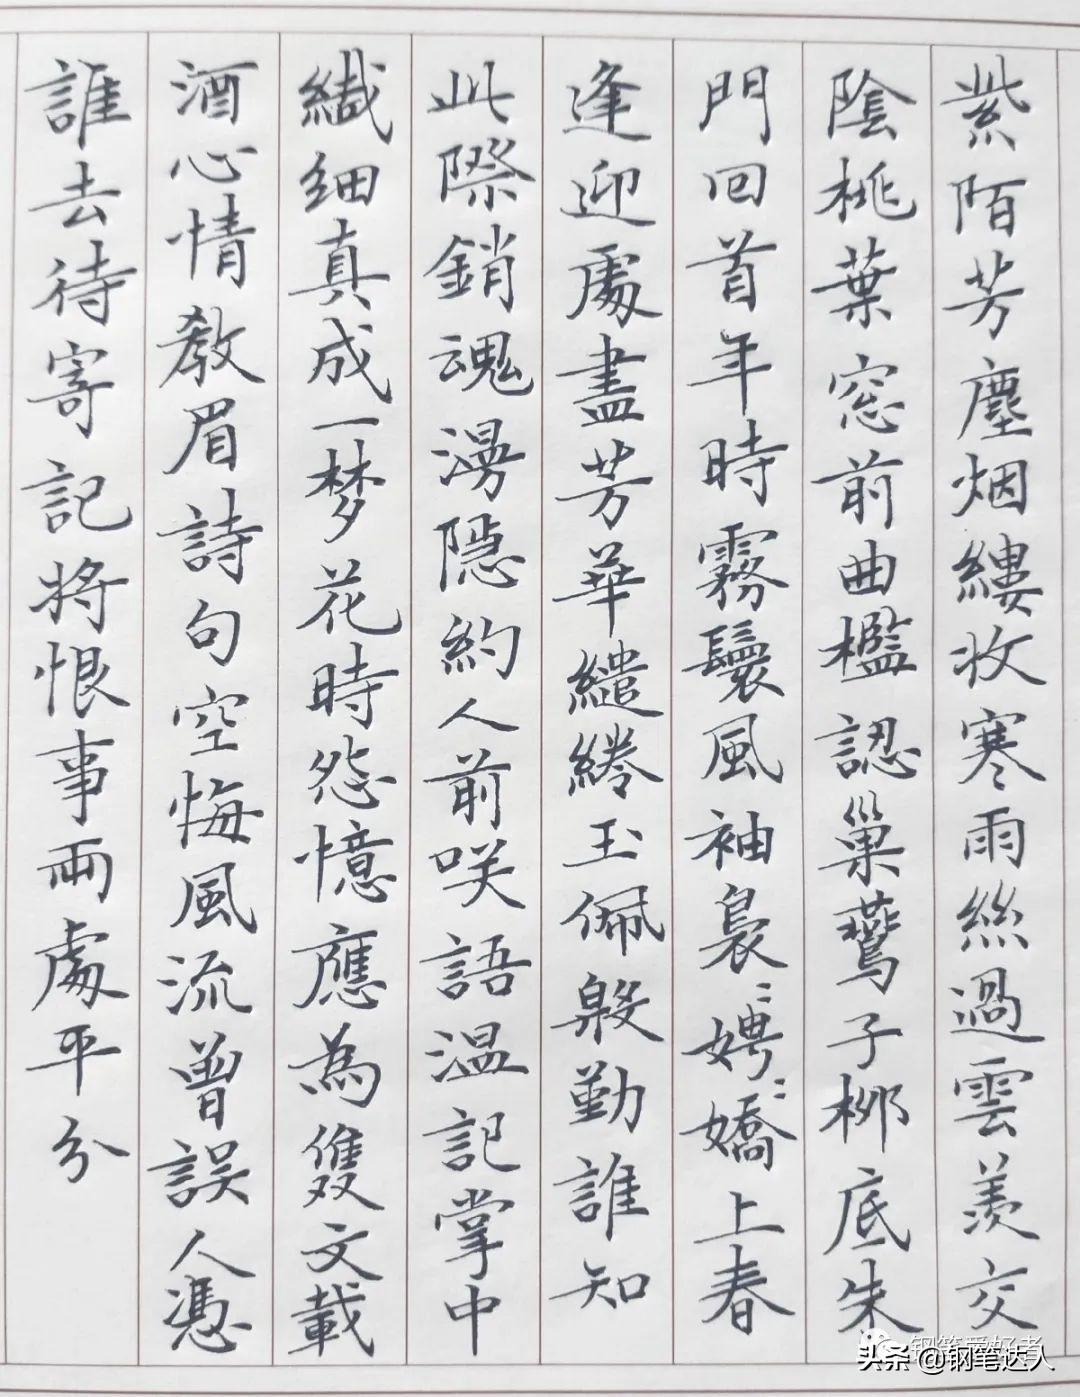 紫陌芳塵烟縷收寒雨絲過雲羨交
陰桃葉窓前曲檻認巢鶯子柳底朱
門回首年時霧鬟風袖裊〻娉〻嬌上春
逢迎處盡芳華繾綣玉佩殷勤誰知
此際銷魂漫隱約人前咲語溫記掌中
纖細真成一梦花時怨憶應為雙文載
酒心情教眉詩句空悔風流曾誤人憑
誰去待寄記將恨事兩處平分
钢笔爱好者
头条 @钢笔达人